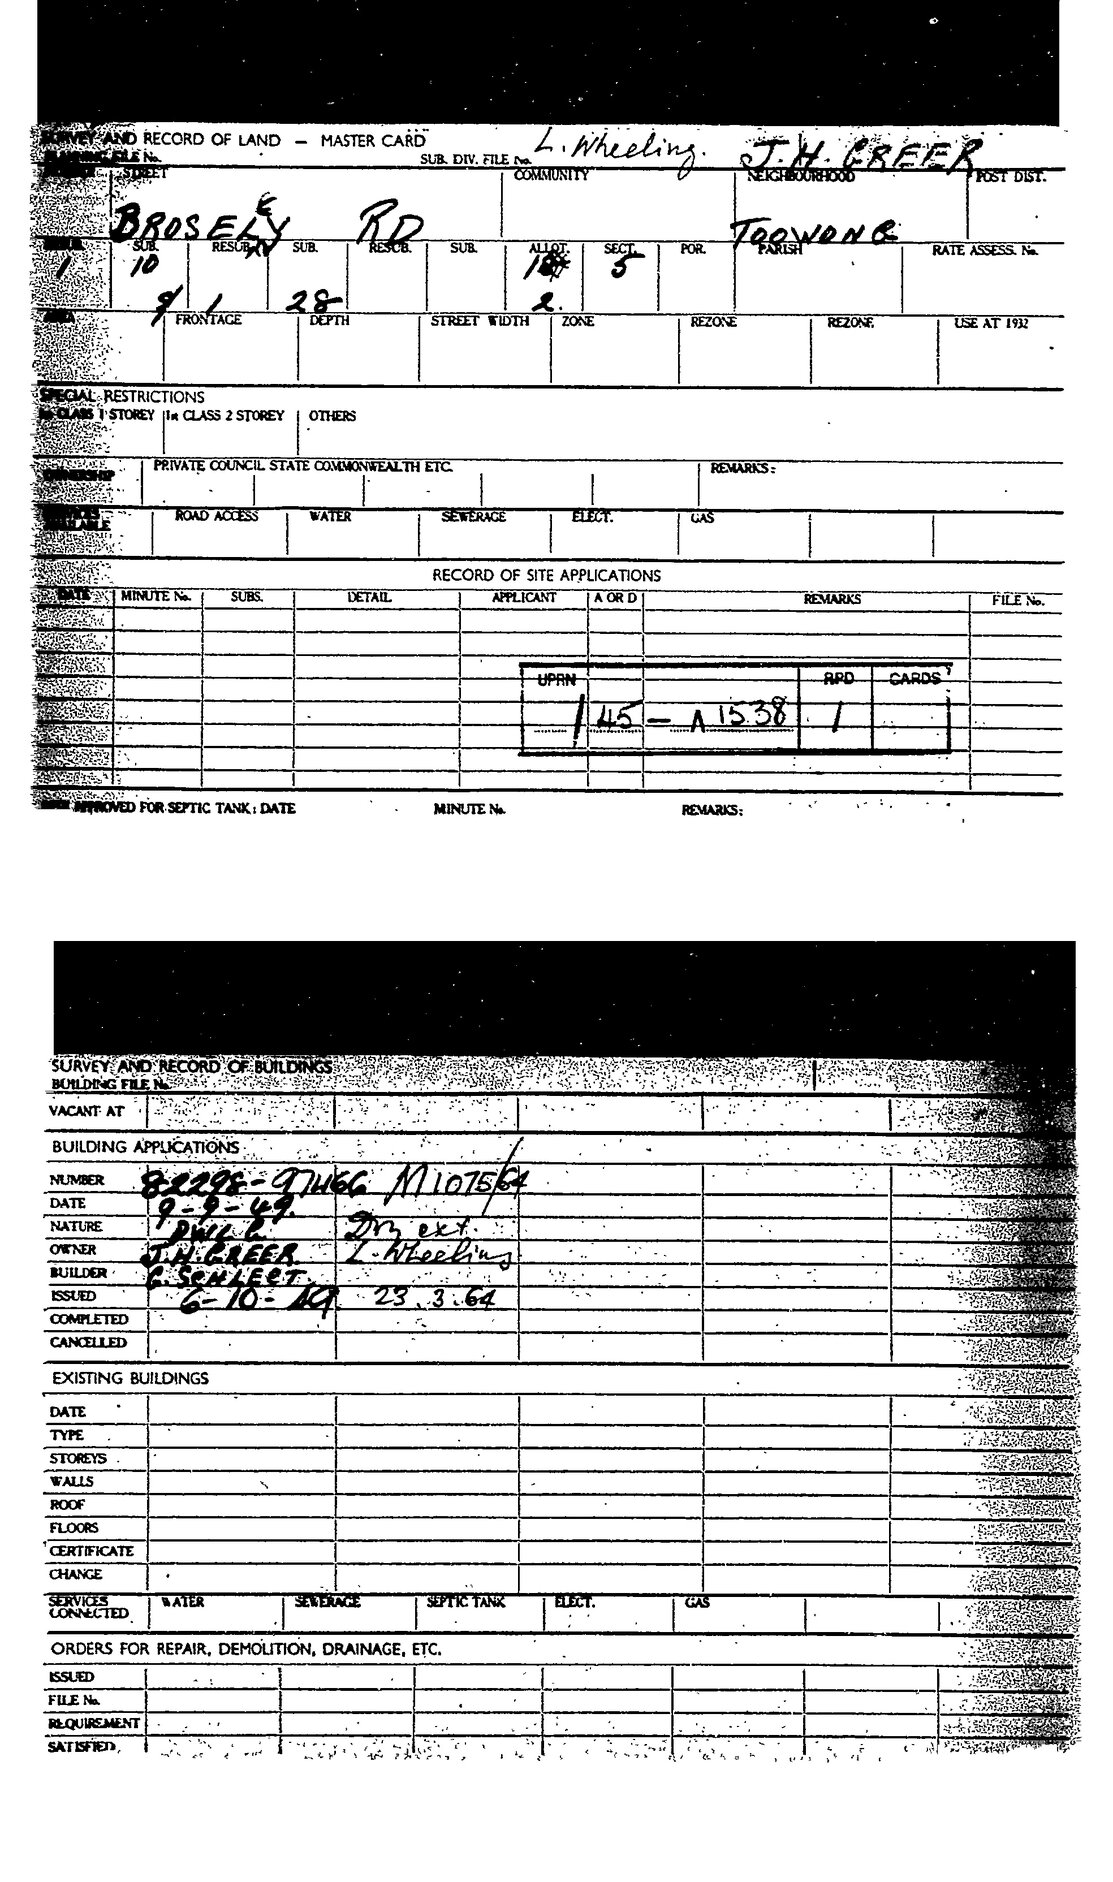 SURVEY AND RECORD OF LAND — MASTER CARD
L. Wheeling. J. H. GREER
FILE No. SUB. DIV. FILE No.
STREET COMMUNITY NEIGHBOURHOOD POST DIST.
BROSELEY RD TOOWONG
SUB. RESUB. SUB. RESUB. SUB. ALLOT. SECT. POR. PARISH RATE ASSESS. No.
1 10 5
1 28 2.
AREA FRONTAGE DEPTH STREET WIDTH ZONE REZONE REZONE. USE AT 1932
SPECIAL RESTRICTIONS
CLASS 1 STOREY 1st CLASS 2 STOREY OTHERS
OWNERSHIP PRIVATE COUNCIL STATE COMMONWEALTH ETC. REMARKS:
SERVICES AVAILABLE ROAD ACCESS WATER SEWERAGE ELECT. GAS
RECORD OF SITE APPLICATIONS
DATE MINUTE No. SUBS. DETAIL APPLICANT A OR D REMARKS FILE No.
UPRN RPD CARDS
/ 45 — A 1538 1
APPROVED FOR SEPTIC TANK: DATE MINUTE No. REMARKS:
SURVEY AND RECORD OF BUILDINGS
BUILDING FILE No.
VACANT AT
BUILDING APPLICATIONS
NUMBER 82298-97466 M1075/64
DATE 9-9-49.
NATURE DWLG Dry ext.
OWNER J.H.GREER L. Wheeling
BUILDER G. SCHLECT
ISSUED 6-10-49 23.3.64
COMPLETED
CANCELLED
EXISTING BUILDINGS
DATE
TYPE
STOREYS
WALLS
ROOF
FLOORS
CERTIFICATE
CHANGE
SERVICES CONNECTED WATER SEWERAGE SEPTIC TANK ELECT. GAS
ORDERS FOR REPAIR, DEMOLITION, DRAINAGE, ETC.
ISSUED
FILE No.
REQUIREMENT
SATISFIED